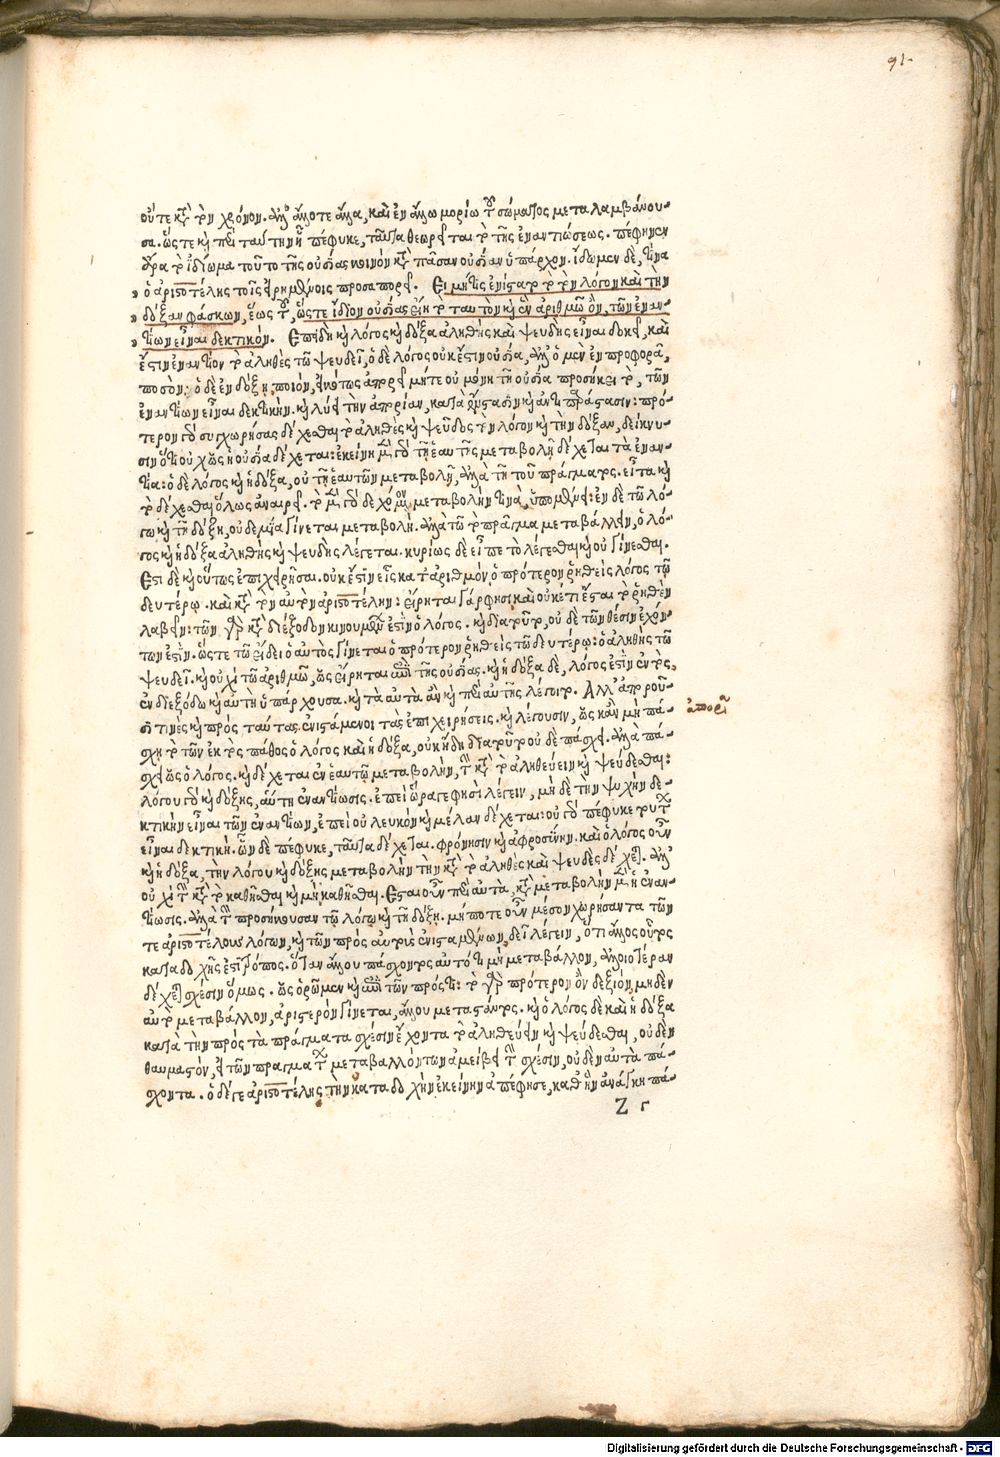 91.
οὔτε κατὰ τὸν χρόνον. ἀλλ' ἄλλοτε ἄλλα, καὶ ἐν ἄλλω μορίω τοῦ σώματος μεταλαμβάνου-
σα. ὥστε καὶ περὶ ταύτην ἣ πέφυκε, ταῦτα θεωρεῖται τὸ τῆς ἐναντιώσεως. πέφηνεν
ἄρα τὸ ἰδίωμα τοῦτο τῆς οὐσίας κοινὸν κατὰ πᾶσαν οὐσίαν ὑπάρχον. ἴδωμεν δὲ, τίνα
ὁ ἀριστοτέλης τοῖς εἰρημένοις προσαπορεῖ. Εἰ μή τις ἐνίσταιτο τὸν λόγον καὶ τὴν
δόξαν φάσκων, ἕως τοῦ, ὥστε ἴδιον οὐσίας εἴη τὸ ταυτὸν καὶ ἓν ἀριθμῶ ὂν, τῶν ἐναν-
τίων εἶναι δεκτικόν. Επειδὴ καὶ λόγος καὶ δόξα ἀληθὴς καὶ ψευδὴς εἶναι δοκεῖ, καὶ
ἔστιν ἐναντίον τὸ ἀληθὲς τῶ ψευδεῖ, ὁ δὲ λόγος οὐκ ἔστιν οὐσία, ἀλλ' ὁ μὲν ἐν προφορᾶ,
ποσόν: ὁ δὲ ἐν δόξη, ποιόν, εἰκότως ἀπορεῖ μήποτε οὐ μόνη τῆ οὐσία προσήκει τὸ, τῶν
ἐναντίων εἶναι δεκτικήν. καὶ λύει τὴν ἀπορίαν, κατὰ ἔνστασιν καὶ ἀντιπαράστασιν: πρό-
τερον γὰρ συγχωρήσας δέχεσθαι τὸ ἀληθὲς καὶ ψεῦδος τὸν λόγον καὶ τὴν δόξαν, δείκνυ-
σιν ὅτι οὐχ ὡς ἡ οὐσία δέχεται: ἐκείνη μὲν γὰρ τῆ ἑαυτῆς μεταβολῆ δέχεται τὰ ἐναν-
τία: ὁ δὲ λόγος καὶ ἡ δόξα, οὐ τῆ ἑαυτῶν μεταβολῆ, ἀλλὰ τῆ τοῦ πράγματος. εἶτα καὶ
τὸ δέχεσθαι ὅλως ἀναιρεῖ. τὸ μὲν γὰρ δεχόμενον μεταβολήν τινα, ὑπομένει: ἐν δὲ τῶ λό-
γω καὶ τῆ δόξη, οὐδεμία γίνεται μεταβολὴ. ἀλλὰ τῶ τὸ πρᾶγμα μεταβάλλειν, ὁ λό-
γος καὶ ἡ δόξα ἀληθὴς καὶ ψευδὴς λέγεται. κυρίως δὲ εἶπε τὸ λέγεσθαι καὶ οὐ γίνεσθαι.
Ετι δὲ καὶ οὕτως ἐπιχειρῆσαι. οὐκ ἔστιν εἷς κατ' ἀριθμόν ὁ πρότερον ῥηθεὶς λόγος τῶ
δευτέρῳ. καὶ κατὰ τὸν αὐτὸν ἀριστοτέλην: εἴρηται γάρ φησι καὶ οὐκέτι ἔσται τὸ ῥηθὲν
λαβεῖν: τῶν γὰρ κατὰ διέξοδον κινουμένων ἐστὶν ὁ λόγος. καὶ διὰ τοῦτο, οὐδὲ τῶν θέσιν ἐχόν-
των ἐστὶν. ὥστε τῶ εἴδει ὁ αὐτὸς γίνεται ὁ πρότερον ῥηθεὶς τῶ δευτέρω: ὁ ἀληθὴς τῶ
ψευδεῖ. καὶ οὐχὶ τῶ ἀριθμῶ, ὡς εἴρηται ἐπὶ τῆς οὐσίας. καὶ ἡ δόξα δὲ, λόγος ἐστὶν ἐντὸς,
ἐν διεξόδω καὶ αὐτὴ ὑπάρχουσα. καὶ τὰ αὐτὰ ἂν καὶ περὶ αὐτῆς λέγοιτο. Αλλ' ἀποροῦ-
σί τινὲς καὶ πρὸς ταύτας ἐνιστάμενοι τὰς ἐπιχειρήσεις. καὶ λέγουσιν, ὡς κἂν μὴ πά-
σχη τὸ τῶν ἐκτὸς πάθος ὁ λόγος καὶ ἡ δόξα, οὐκ ἤδη διὰ τοῦτο οὐδὲ πάσχει. ἀλλὰ πά-
σχει ὡς ὁ λόγος. καὶ δέχεται ἐν ἑαυτῶ μεταβολὴν, τὴν κατὰ τὸ ἀληθεύειν καὶ ψεύδεσθαι:
λόγου γὰρ καὶ δόξης, αὕτη ἐναντίωσις. ἐπεὶ ὥρα γε φησὶ λέγειν, μὴ δὲ τὴν ψυχὴν δε-
κτικὴν εἶναι τῶν ἐναντίων, ἐπεὶ οὐ λευκὸν καὶ μέλαν δέχεται: οὐ γὰρ πέφυκε τούτων
εἶναι δεκτική. ὧν δὲ πέφυκε, ταῦτα δέχεται. φρόνησιν καὶ ἀφροσύνην. καὶ ὁ λόγος οὖν
καὶ ἡ δόξα, τὴν λόγου καὶ δόξης μεταβολὴν τὴν κατὰ τὸ ἀληθὲς καὶ ψευδὲς δέχεται. ἀλλ'
οὐχὶ τὴν κατὰ τὸ καθῆσθαι καὶ μὴ καθῆσθαι. Εσται οὖν περὶ αὐτὰ, κατὰ μεταβολὴν μὲν ἡ ἐναν-
τίωσις. ἀλλὰ τὴν προσήκουσαν τῶ λόγω καὶ τῆ δόξη. μήποτε οὖν μέσον χωρήσαντα τῶν
τε ἀριστοτέλους λόγων, καὶ τῶν πρὸς αὐτοὺς ἐνισταμένων, δεῖ λέγειν, ὅτι ἄλλος οὗτος
καταδοχῆς ἐστὶ τρόπος. ὅταν ἄλλου πάσχοντος αὐτό τι μὴ μεταβάλλον, ἀλλοιοτέραν
δέχεται σχέσιν ὅμως. ὡς ὁρῶμεν καὶ ἐπὶ τῶν πρός τι: τὸ γὰρ πρότερον ὂν δεξιὸν, μηδὲν
αὐτὸ μεταβάλλον, ἀριστερὸν γίνεται, ἄλλου μεταστάντος. καὶ ὁ λόγος δὲ καὶ ἡ δόξα
κατὰ τὴν πρὸς τὰ πράγματα σχέσιν ἔχοντα τὸ ἀληθεύειν καὶ ψεύδεσθαι, οὐδὲν
θαυμαστὸν, εἰ τῶν πραγμάτων μεταβαλλόντων ἀμείβει τὴν σχέσιν, οὐδὲν αὐτὰ πά-
σχοντα. ὁ δέ γε ἀριστοτέλης τὴν καταδοχὴν ἐκείνην ἀπέφησε, καθ' ἣν ἀνάγκη πά-
ἀπορία
Ζ г
Digitalisierung gefördert durch die Deutsche Forschungsgemeinschaft - DFG